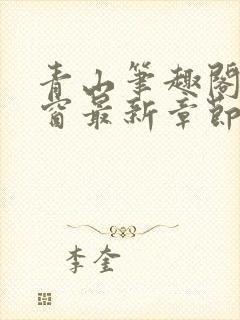 青山笔趣阁
窗最新章节
李奎